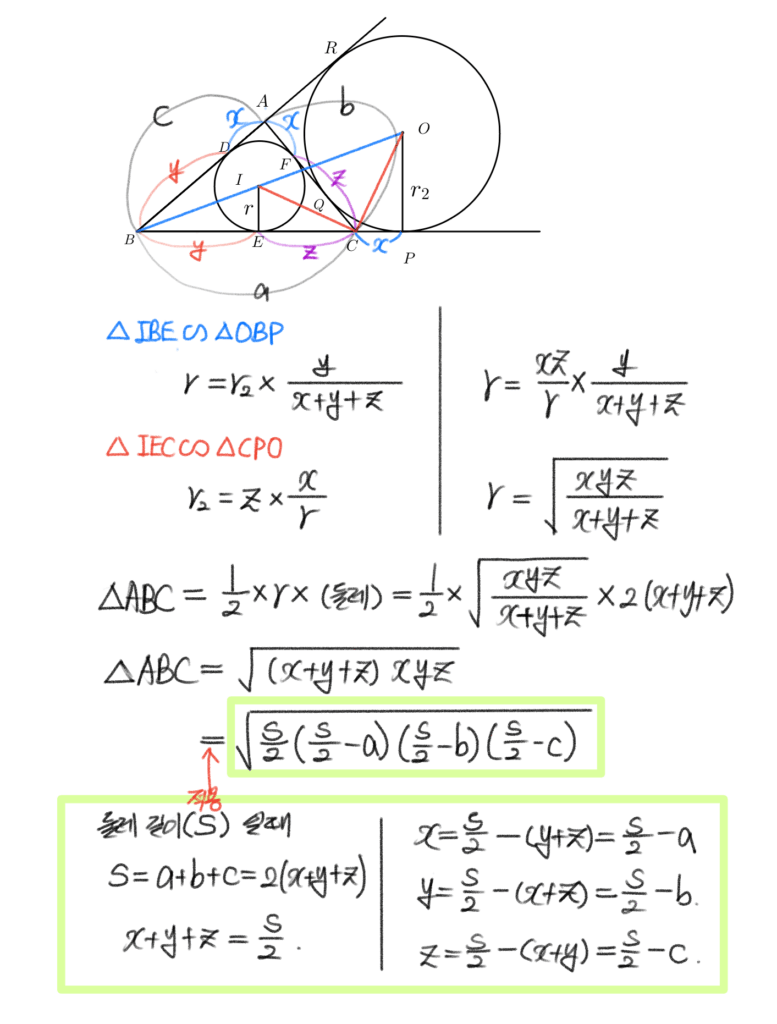 R
c
A
b
x
x
O
D
y
F
z
I
Q
r
r₂
B
E
C
x
P
y
z
a
△IBE∽△OBP
r = r₂ × y/(x+y+z)
r = xz/r × y/(x+y+z)
△IEC∽△CPO
r₂ = z × x/r
r = √(xyz/(x+y+z))
△ABC = 1/2 × r × (둘레) = 1/2 × √(xyz/(x+y+z)) × 2(x+y+z)
△ABC = √((x+y+z) xyz)
= √(s/2(s/2-a)(s/2-b)(s/2-c))
적용
둘레 길이(S) 일때
S = a+b+c = 2(x+y+z)
x+y+z = s/2.
x = s/2 - (y+z) = s/2 - a
y = s/2 - (x+z) = s/2 - b.
z = s/2 - (x+y) = s/2 - c.